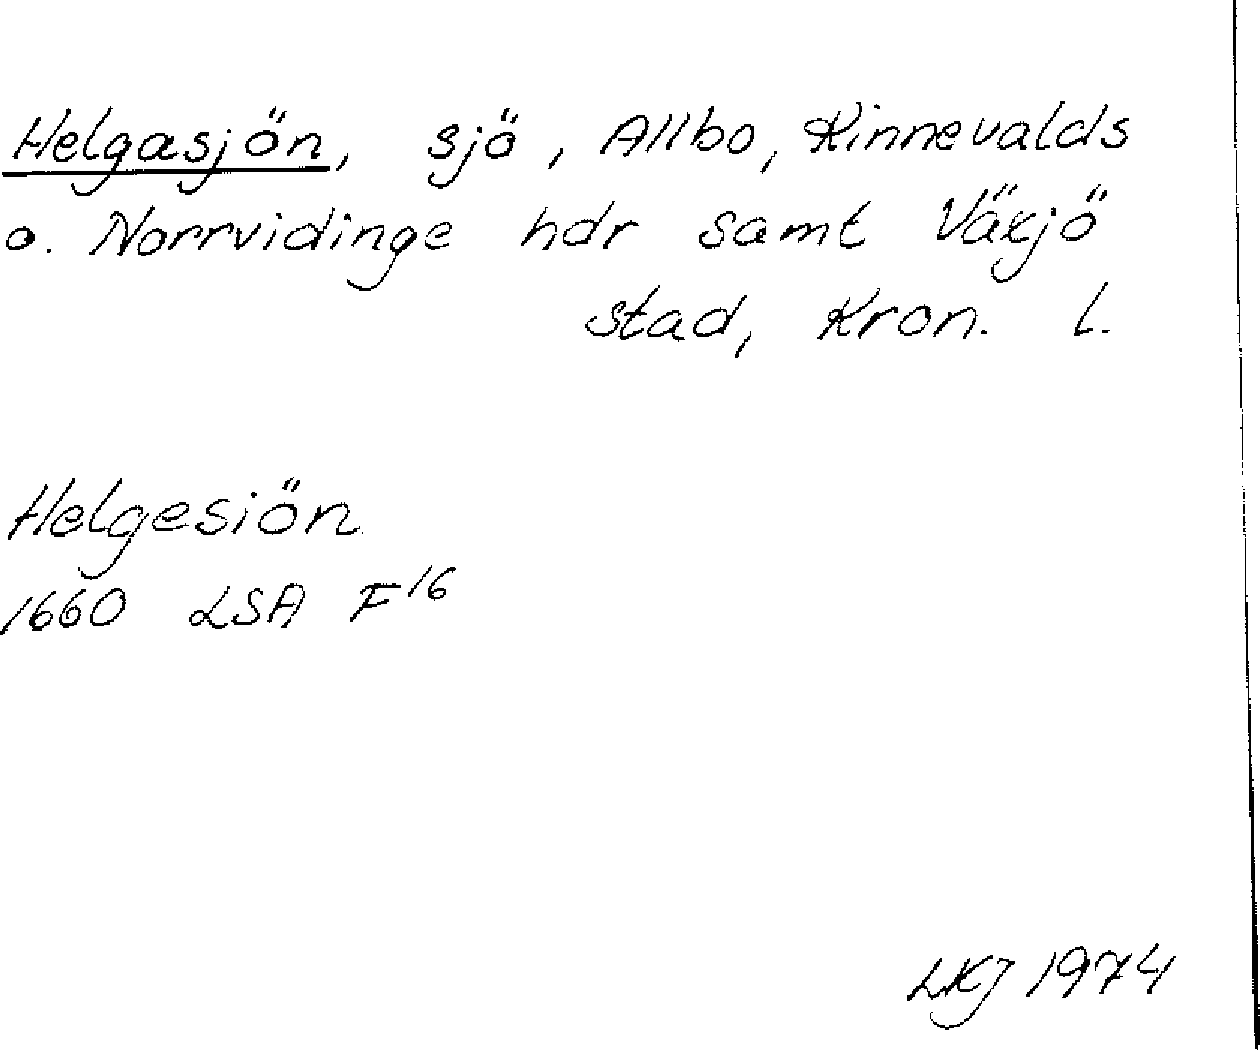 Helgasjön, sjö, Allbo, Kinnevalds
o. Norrvidinge hdr samt Växjö
stad, Kron. l.
Helgesiön
1660 LSA F16
LKJ 1974